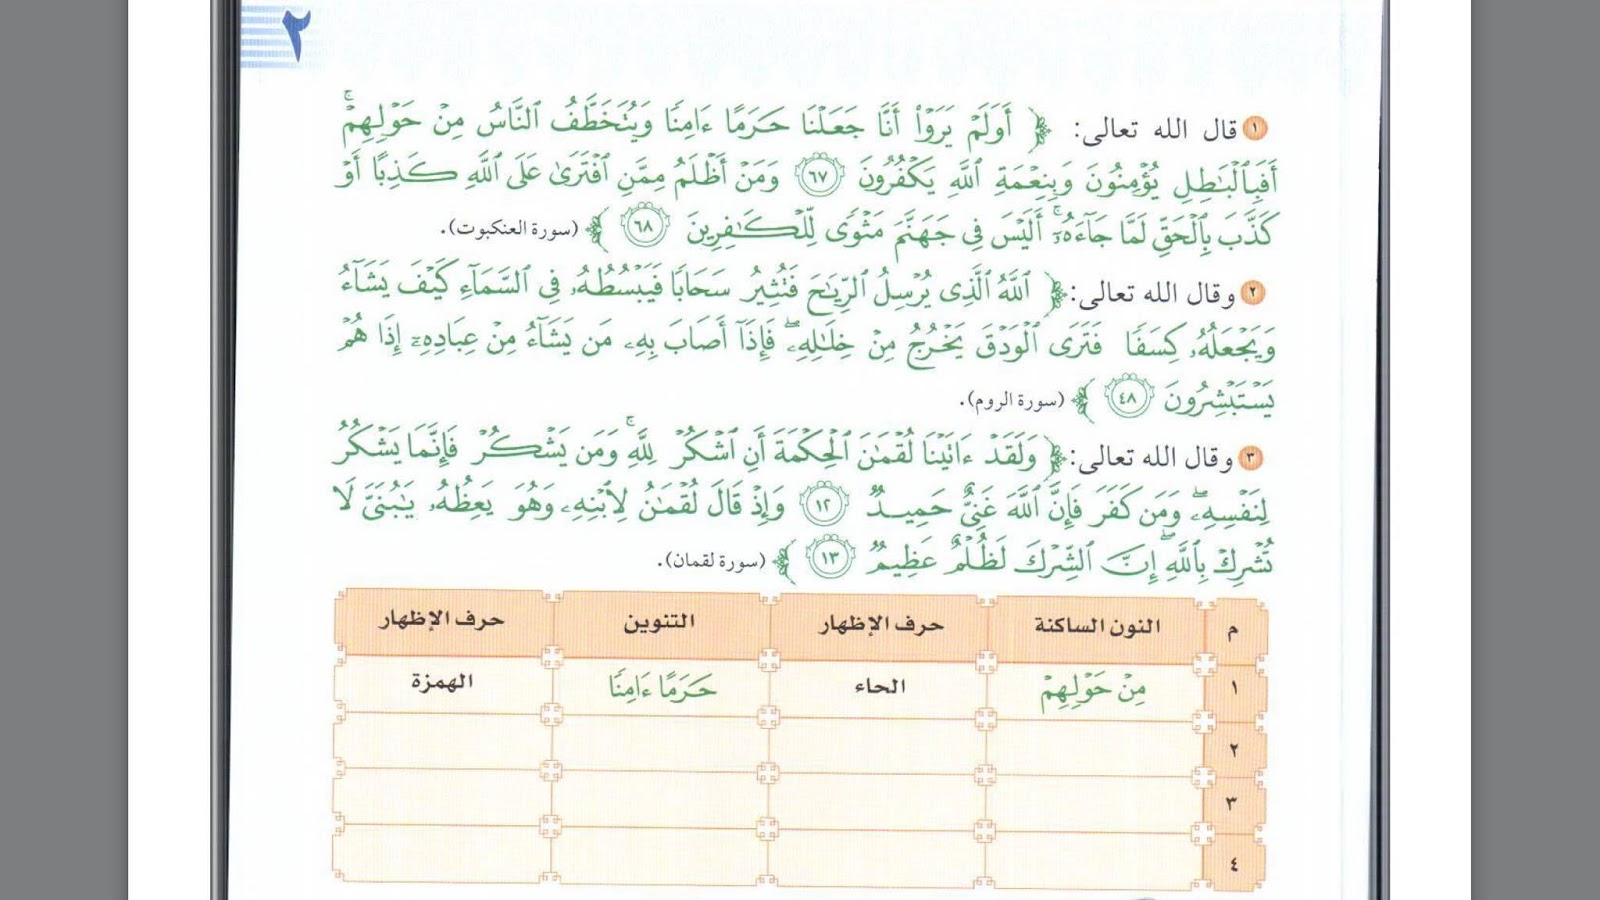 ٢
١ قال الله تعالى: ﴿ أَوَلَمْ يَرَوْا۟ أَنَّا جَعَلْنَا حَرَمًا ءَامِنًا وَيُتَخَطَّفُ ٱلنَّاسُ مِنْ حَوْلِهِمْ ۚ
أَفَبِٱلْبَـٰطِلِ يُؤْمِنُونَ وَبِنِعْمَةِ ٱللَّهِ يَكْفُرُونَ ٦٧ وَمَنْ أَظْلَمُ مِمَّنِ ٱفْتَرَىٰ عَلَى ٱللَّهِ كَذِبًا أَوْ
كَذَّبَ بِٱلْحَقِّ لَمَّا جَآءَهُۥٓ ۚ أَلَيْسَ فِى جَهَنَّمَ مَثْوًى لِّلْكَـٰفِرِينَ ٦٨ ﴾ (سورة العنكبوت).
٢ وقال الله تعالى: ﴿ ٱللَّهُ ٱلَّذِى يُرْسِلُ ٱلرِّيَـٰحَ فَتُثِيرُ سَحَابًا فَيَبْسُطُهُۥ فِى ٱلسَّمَآءِ كَيْفَ يَشَآءُ
وَيَجْعَلُهُۥ كِسَفًا فَتَرَى ٱلْوَدْقَ يَخْرُجُ مِنْ خِلَـٰلِهِۦ ۖ فَإِذَآ أَصَابَ بِهِۦ مَن يَشَآءُ مِنْ عِبَادِهِۦٓ إِذَا هُمْ
يَسْتَبْشِرُونَ ٤٨ ﴾ (سورة الروم).
٣ وقال الله تعالى: ﴿ وَلَقَدْ ءَاتَيْنَا لُقْمَـٰنَ ٱلْحِكْمَةَ أَنِ ٱشْكُرْ لِلَّهِ ۚ وَمَن يَشْكُرْ فَإِنَّمَا يَشْكُرُ
لِنَفْسِهِۦ ۖ وَمَن كَفَرَ فَإِنَّ ٱللَّهَ غَنِىٌّ حَمِيدٌ ١٢ وَإِذْ قَالَ لُقْمَـٰنُ لِٱبْنِهِۦ وَهُوَ يَعِظُهُۥ يَـٰبُنَىَّ لَا
تُشْرِكْ بِٱللَّهِ ۖ إِنَّ ٱلشِّرْكَ لَظُلْمٌ عَظِيمٌ ١٣ ﴾ (سورة لقمان).
م النون الساكنة حرف الإظهار التنوين حرف الإظهار
١ مِنْ حَوْلِهِمْ الحاء حَرَمًا ءَامِنًا الهمزة
٢
٣
٤